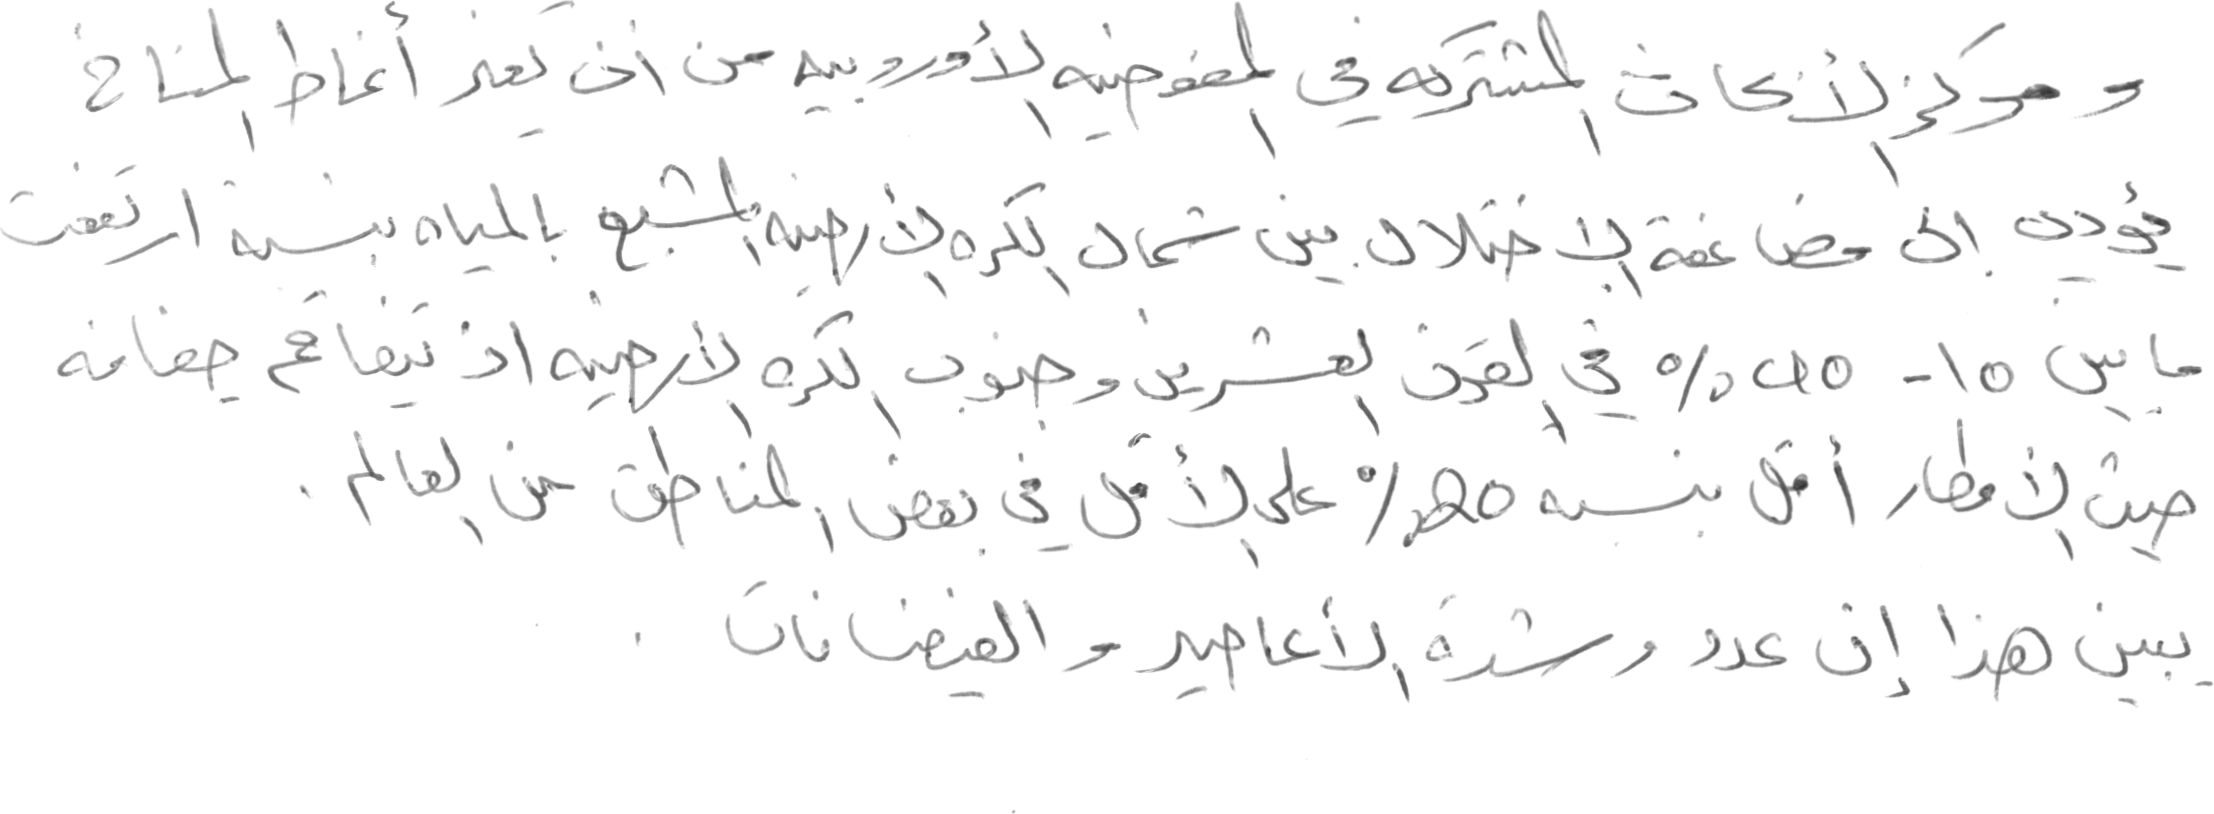 ومركز الأبحاث المشتركه في المفوضيه الأوروبيه من ان تغير أنماط المناخ
يؤدي الى مضاعفة الاختلال بين شمال الكره الأرضيه المشبع بالمياه بنسبة ارتفعت
مابين 10 - 40% في القرن العشرين وجنوب الكره الأرضيه اذ تتفاقم جفافه
حيث الامطار أقل بنسبه 20% على الأقل في بعض المناطق من العالم .
يبين هذا إن عدد وشدة الأعاصير و الفيضانات .